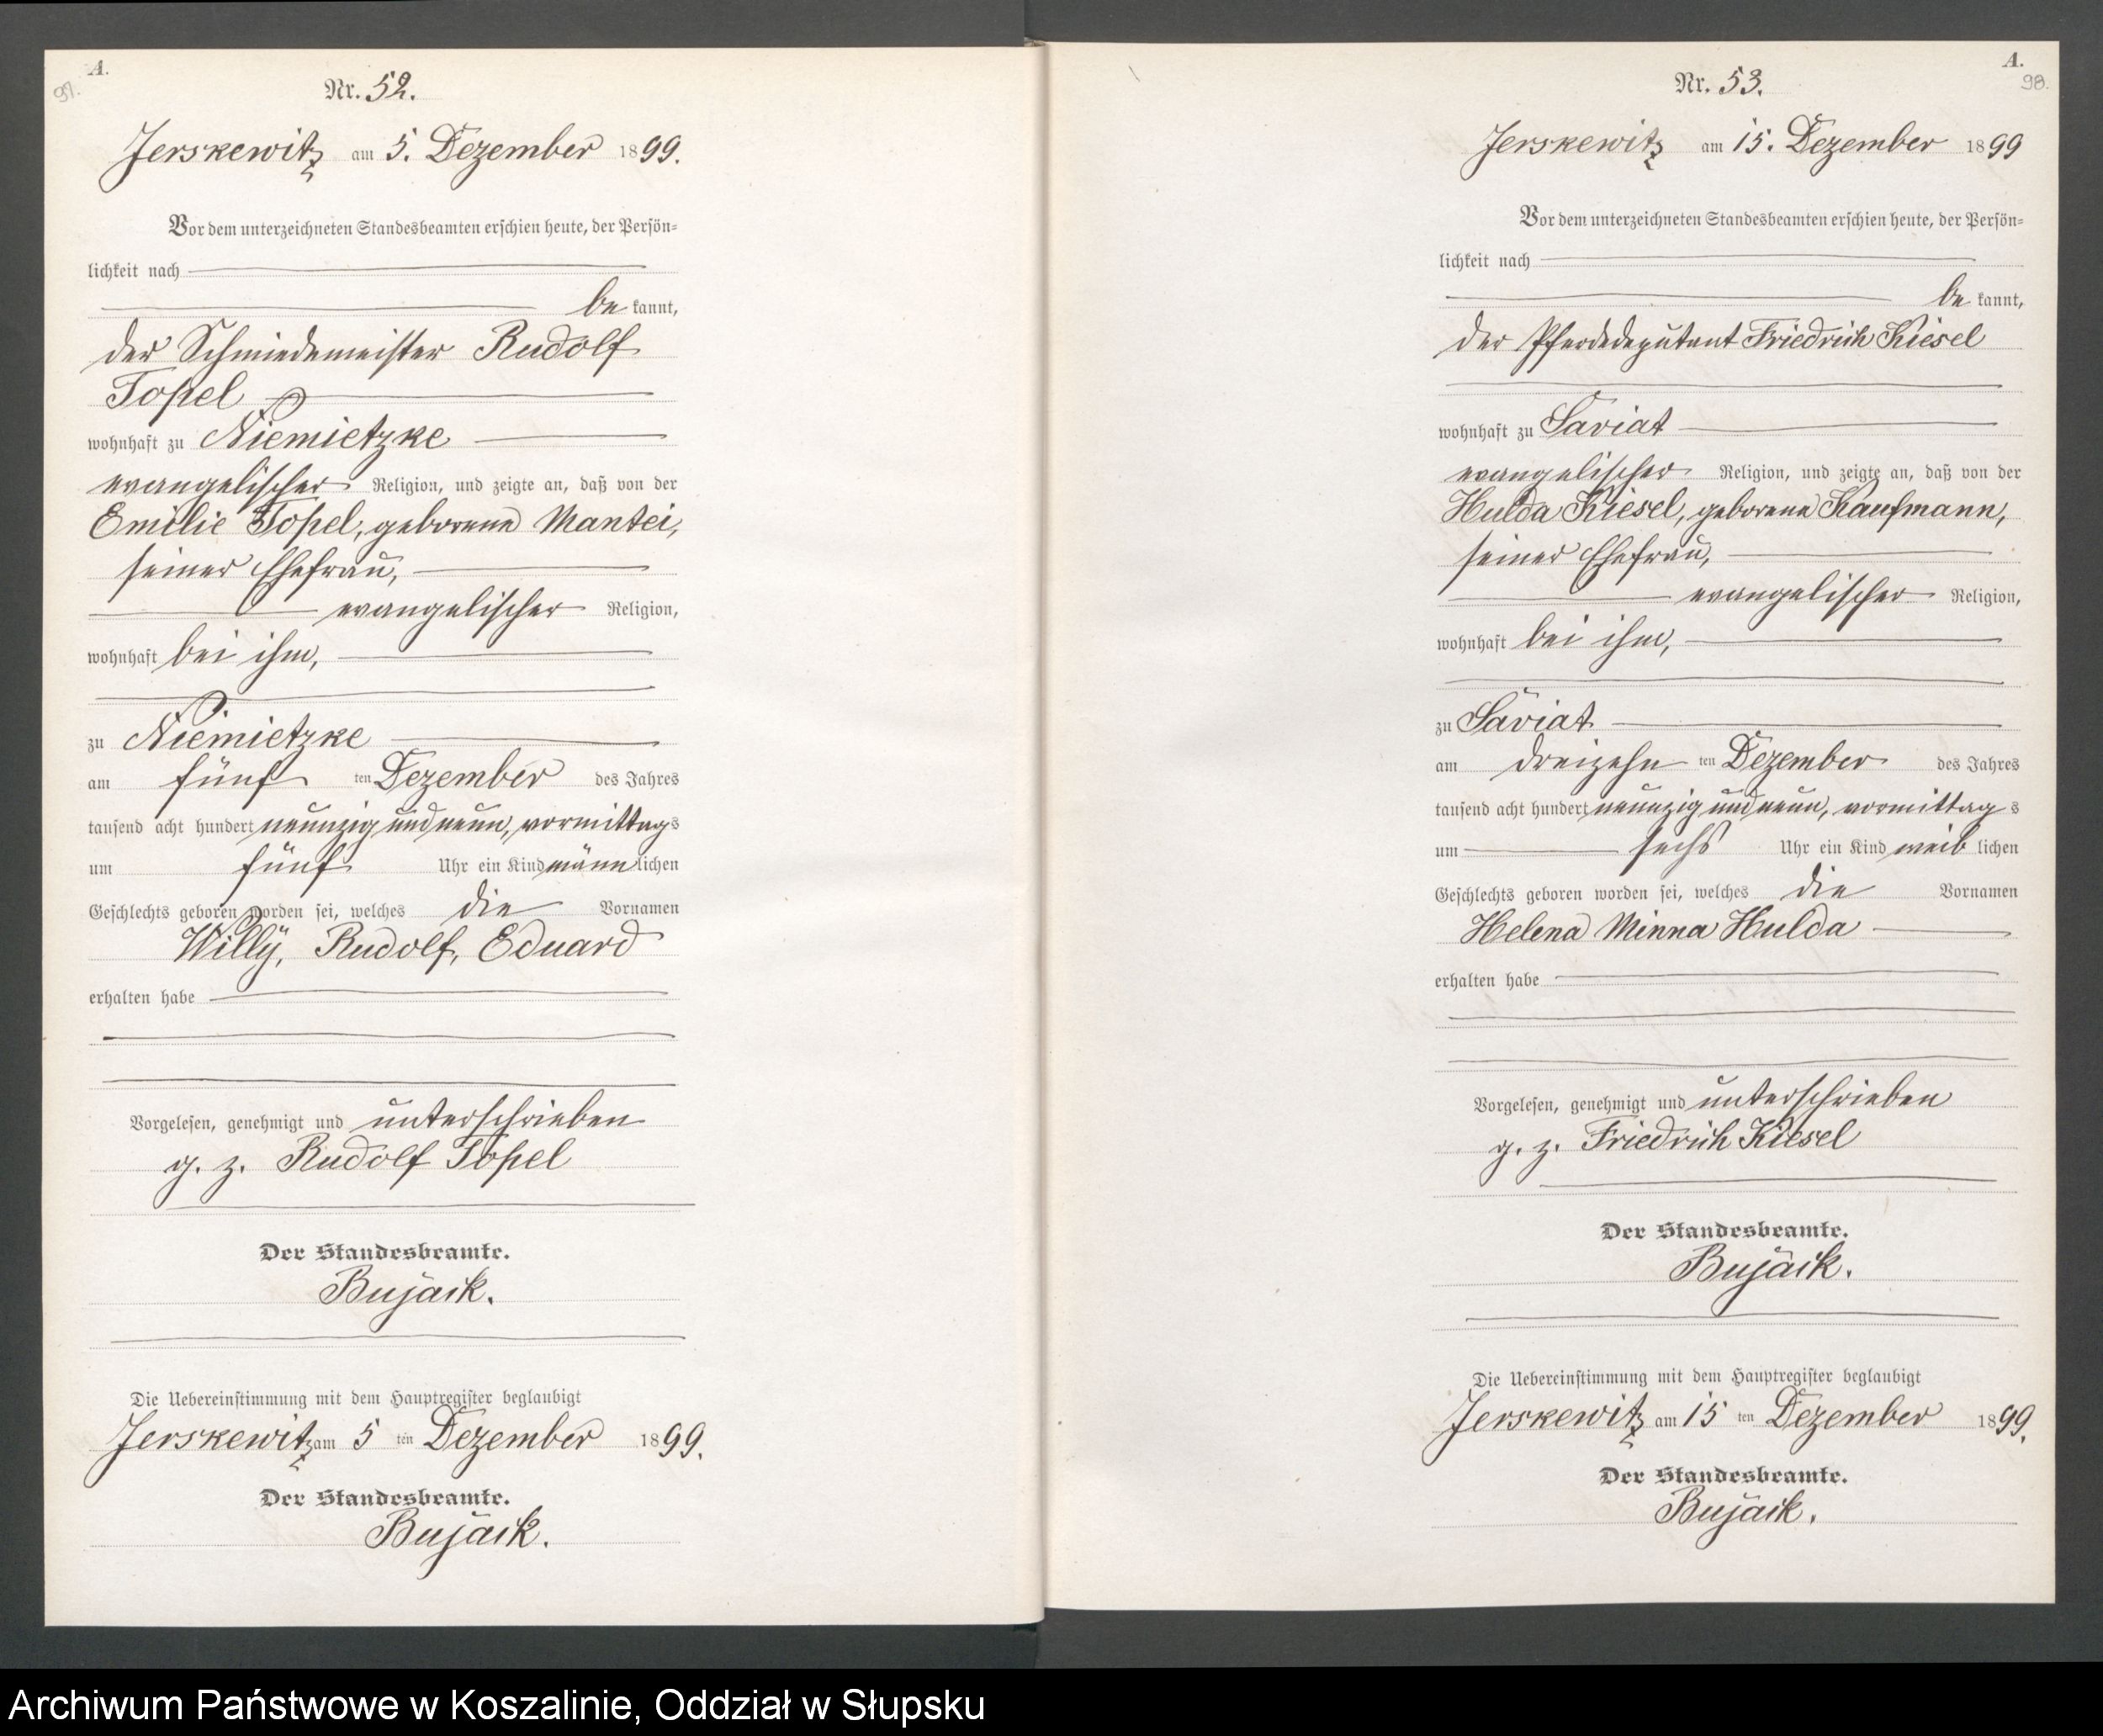 A.
97.
Nr. 52.
Jerskewitz am 5. Dezember 1899.
Vor dem unterzeichneten Standesbeamten erschien heute, der Persön=
lichkeit nach
be kannt,
der Schmiedemeister Rudolf
Topel
wohnhaft zu Niemietzke
evangelischer Religion, und zeigte an, daß von der
Emilie Topel, geborene Mantei,
seiner Ehefrau,
evangelischer Religion,
wohnhaft bei ihm,
zu Niemietzke
am fünf ten Dezember des Jahres
tausend acht hundert neunzig und neun, vormittags
um fünf Uhr ein Kind männlichen
Geschlechts geboren worden sei, welches die Vornamen
Willy, Rudolf, Eduard
erhalten habe
Vorgelesen, genehmigt und unterschrieben
g. z. Rudolf Topel
Der Standesbeamte.
Bujack.
Die Uebereinstimmung mit dem Hauptregister beglaubigt
Jerskewitz am 5 ten Dezember 1899.
Der Standesbeamte.
Bujack.
A.
98.
Nr. 53.
Jerskewitz am 15. Dezember 1899
Vor dem unterzeichneten Standesbeamten erschien heute, der Persön=
lichkeit nach
be kannt,
der Pferdedeputant Friedrich Kiesel
wohnhaft zu Saviat
evangelischer Religion, und zeigte an, daß von der
Hulda Kiesel, geborene Kaufmann,
seiner Ehefrau,
evangelischer Religion,
wohnhaft bei ihm,
zu Saviat
am dreizehn ten Dezember des Jahres
tausend acht hundert neunzig und neun, vormittag s
um sechs Uhr ein Kind weib lichen
Geschlechts geboren worden sei, welches die Vornamen
Helena Minna Hulda
erhalten habe
Vorgelesen, genehmigt und unterschrieben
g. z. Friedrich Kiesel
Der Standesbeamte.
Bujack.
Die Uebereinstimmung mit dem Hauptregister beglaubigt
Jerskewitz am 15 ten Dezember 1899.
Der Standesbeamte.
Bujack.
Archiwum Państwowe w Koszalinie, Oddział w Słupsku